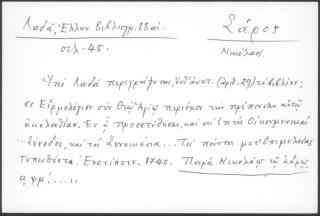 Λαδᾶ, Ἑλλην. Βιβλιογρ. 18 αἰ.
σελ - 45.
Σάρος
Νικόλαος
Ὑπό Λαδᾶ περιγράφεται, ἐνθ' ἀνωτ. (ἀριθ. 29) τό βιβλίον;
« Εἱρμολόγιον σύν Θεῷ Ἁγίῳ περιέχον τήν πρέπουσαν αὐτῷ
ἀκολουθίαν. Ἐν ᾧ προσετέθησαν, καί αἱ ἑπτά Οἰκουμενικαί
Σύνοδοι, καί τά Συνοικέσια... Τά πάντα μετ' ἐπιμελείας
Τυπωθέντα. Ἐνετίησιν. 1740. Παρά Νικολάῳ τῷ Σάρῳ
αψμ΄....,,